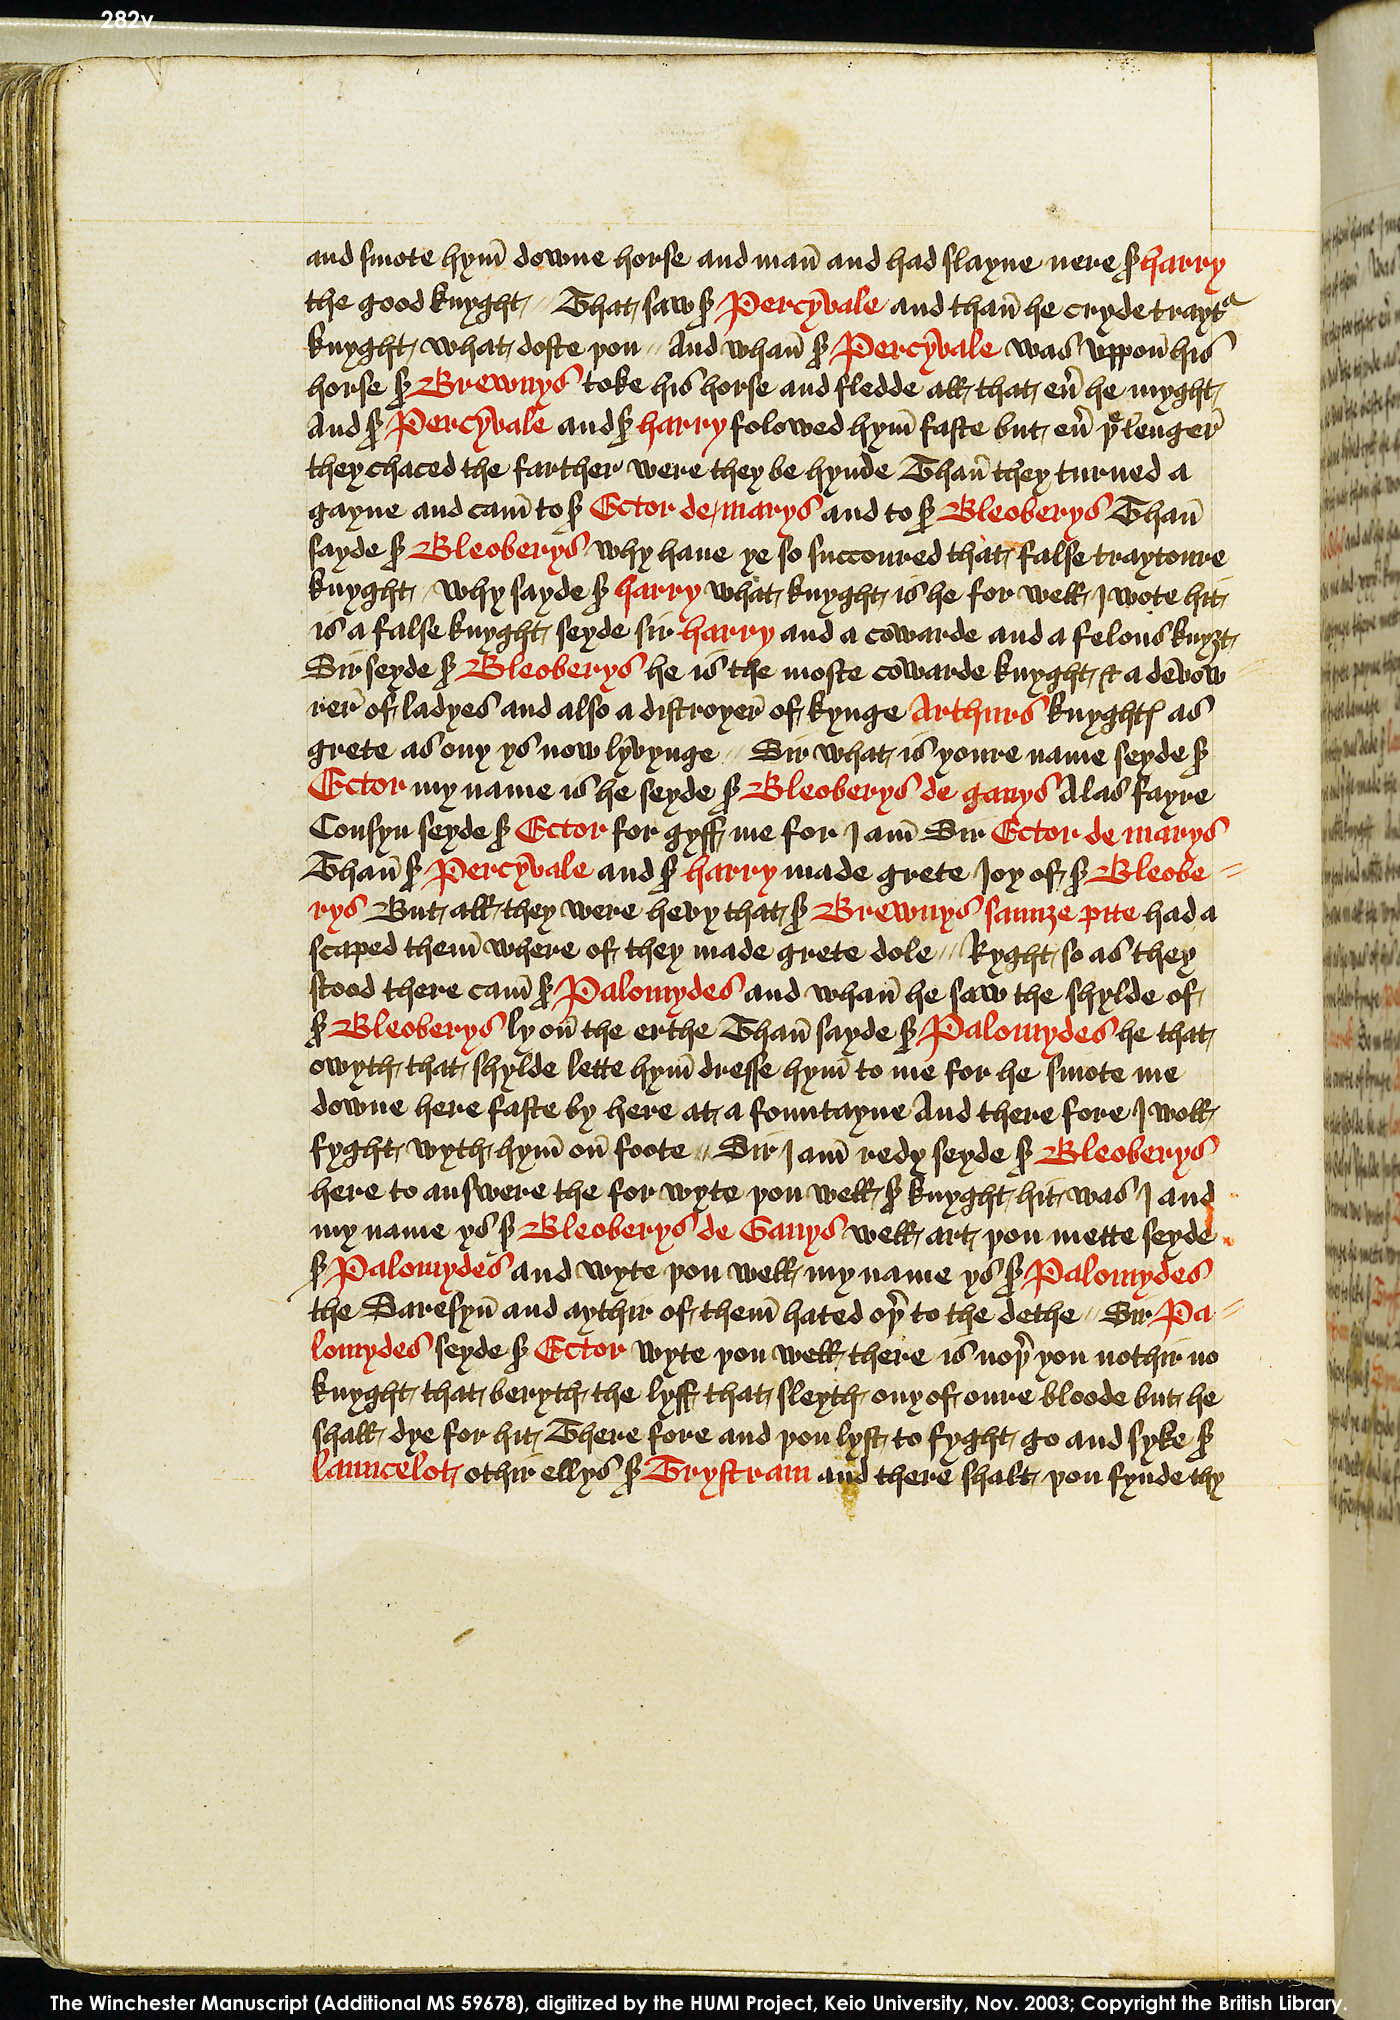 282v
and smote hym̄ downe horse and man̄ and had slayne nere ẜ harry
the good knyght // That saw ẜ Percyvale and than̄ he cryde traytᵃ
knyght what doste þou // And whan̄ ẜ Percyvale was vppon̄ his
horse ẜ Brewnys toke his horse and fledde all that eu̓ he myght
And ẜ Percyvale and ẜ harry folowed hym̄ faste but eu̓ þᵉ lenger̄
they chaced the farther were they be hynde Than̄ they turned a
gayne and cam̄ to ẜ Ector de marys and to ẜ Bleoberys Than̄
sayde ẜ Bleoberys why haue ye so succoured that false traytoure
knyght / why sayde ẜ harry what knyght is he for well I wote hit
is a false knyght seyde sir harry and a cowarde and a felous knyȝt
Sir seyde ẜ Bleoberys he is the moste cowarde knyght & a devow
rer̄ of ladyes and also a distroyer̄ of kynge Arthurs knyghtꝭ as
grete as ony ys now lyvynge // Sir what is youre name seyde ẜ
Ector my name is he seyde ẜ Bleoberys de ganys Alas fayre
Cousyn seyde ẜ Ector for gyff me for I am̄ Sir Ector de marys
Than̄ ẜ Percyvale and ẜ harry made grete Joy of ẜ Bleobe=
rys But all they were hevy that ẜ Brewnys saunze pite had a
scaped them̄ where of they made grete dole // Ryght so as they
stood there cam̄ ẜ Palomydes and whan̄ he saw the shylde of
ẜ Bleoberys ly on̄ the erthe Than̄ sayde ẜ Palomydes he that
owyth that shylde lette hym̄ dresse hym̄ to me for he smote me
downe here faste by here at a fountayne And there fore I woll
fyght wyth hym̄ on̄ foote // Sir I am̄ redy seyde ẜ Bleoberys
here to answere the for wyte þou well ẜ knyght hit was I and
my name ys ẜ Bleoberys de Ganys well art þou mette seyde
ẜ Palomydes and wyte þou well my name ys ẜ Palomydes
the Saresyn̄ and aythir of them̄ hated oþ̓ to the dethe // Sir Pa=
lomydes seyde ẜ Ector wyte þou well there is noþ̓ þou nothir no
knyght that beryth the lyff that sleyth ony of oure bloode but he
shall dye for hit There fore and þou lyst to fyght go and syke ẜ
launcelot othir ellys ẜ Trystram and there shalt þou fynde thy
The Winchester Manuscript (Additional MS 59678), digitized by the HUMI Project, Keio University, Nov. 2003; Copyright the British Library.